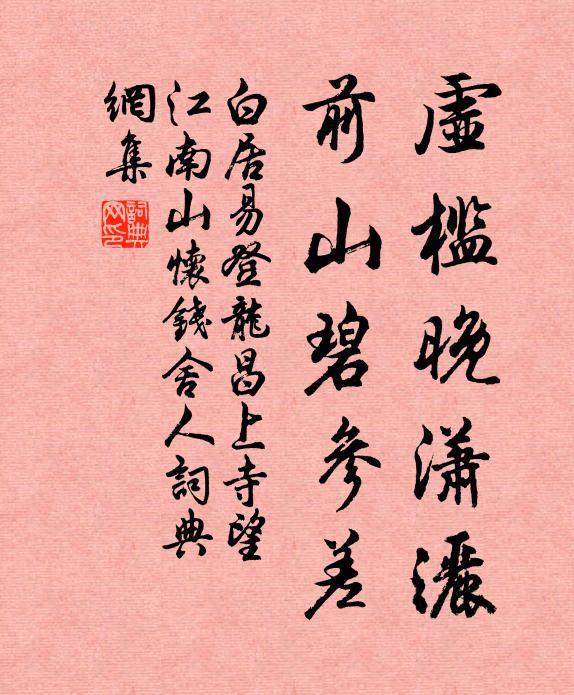 虛檻晚瀟灑
前山碧參差
白居易登龍昌上寺望
江南山懷錢舍人詞典
網集
詞典
網印